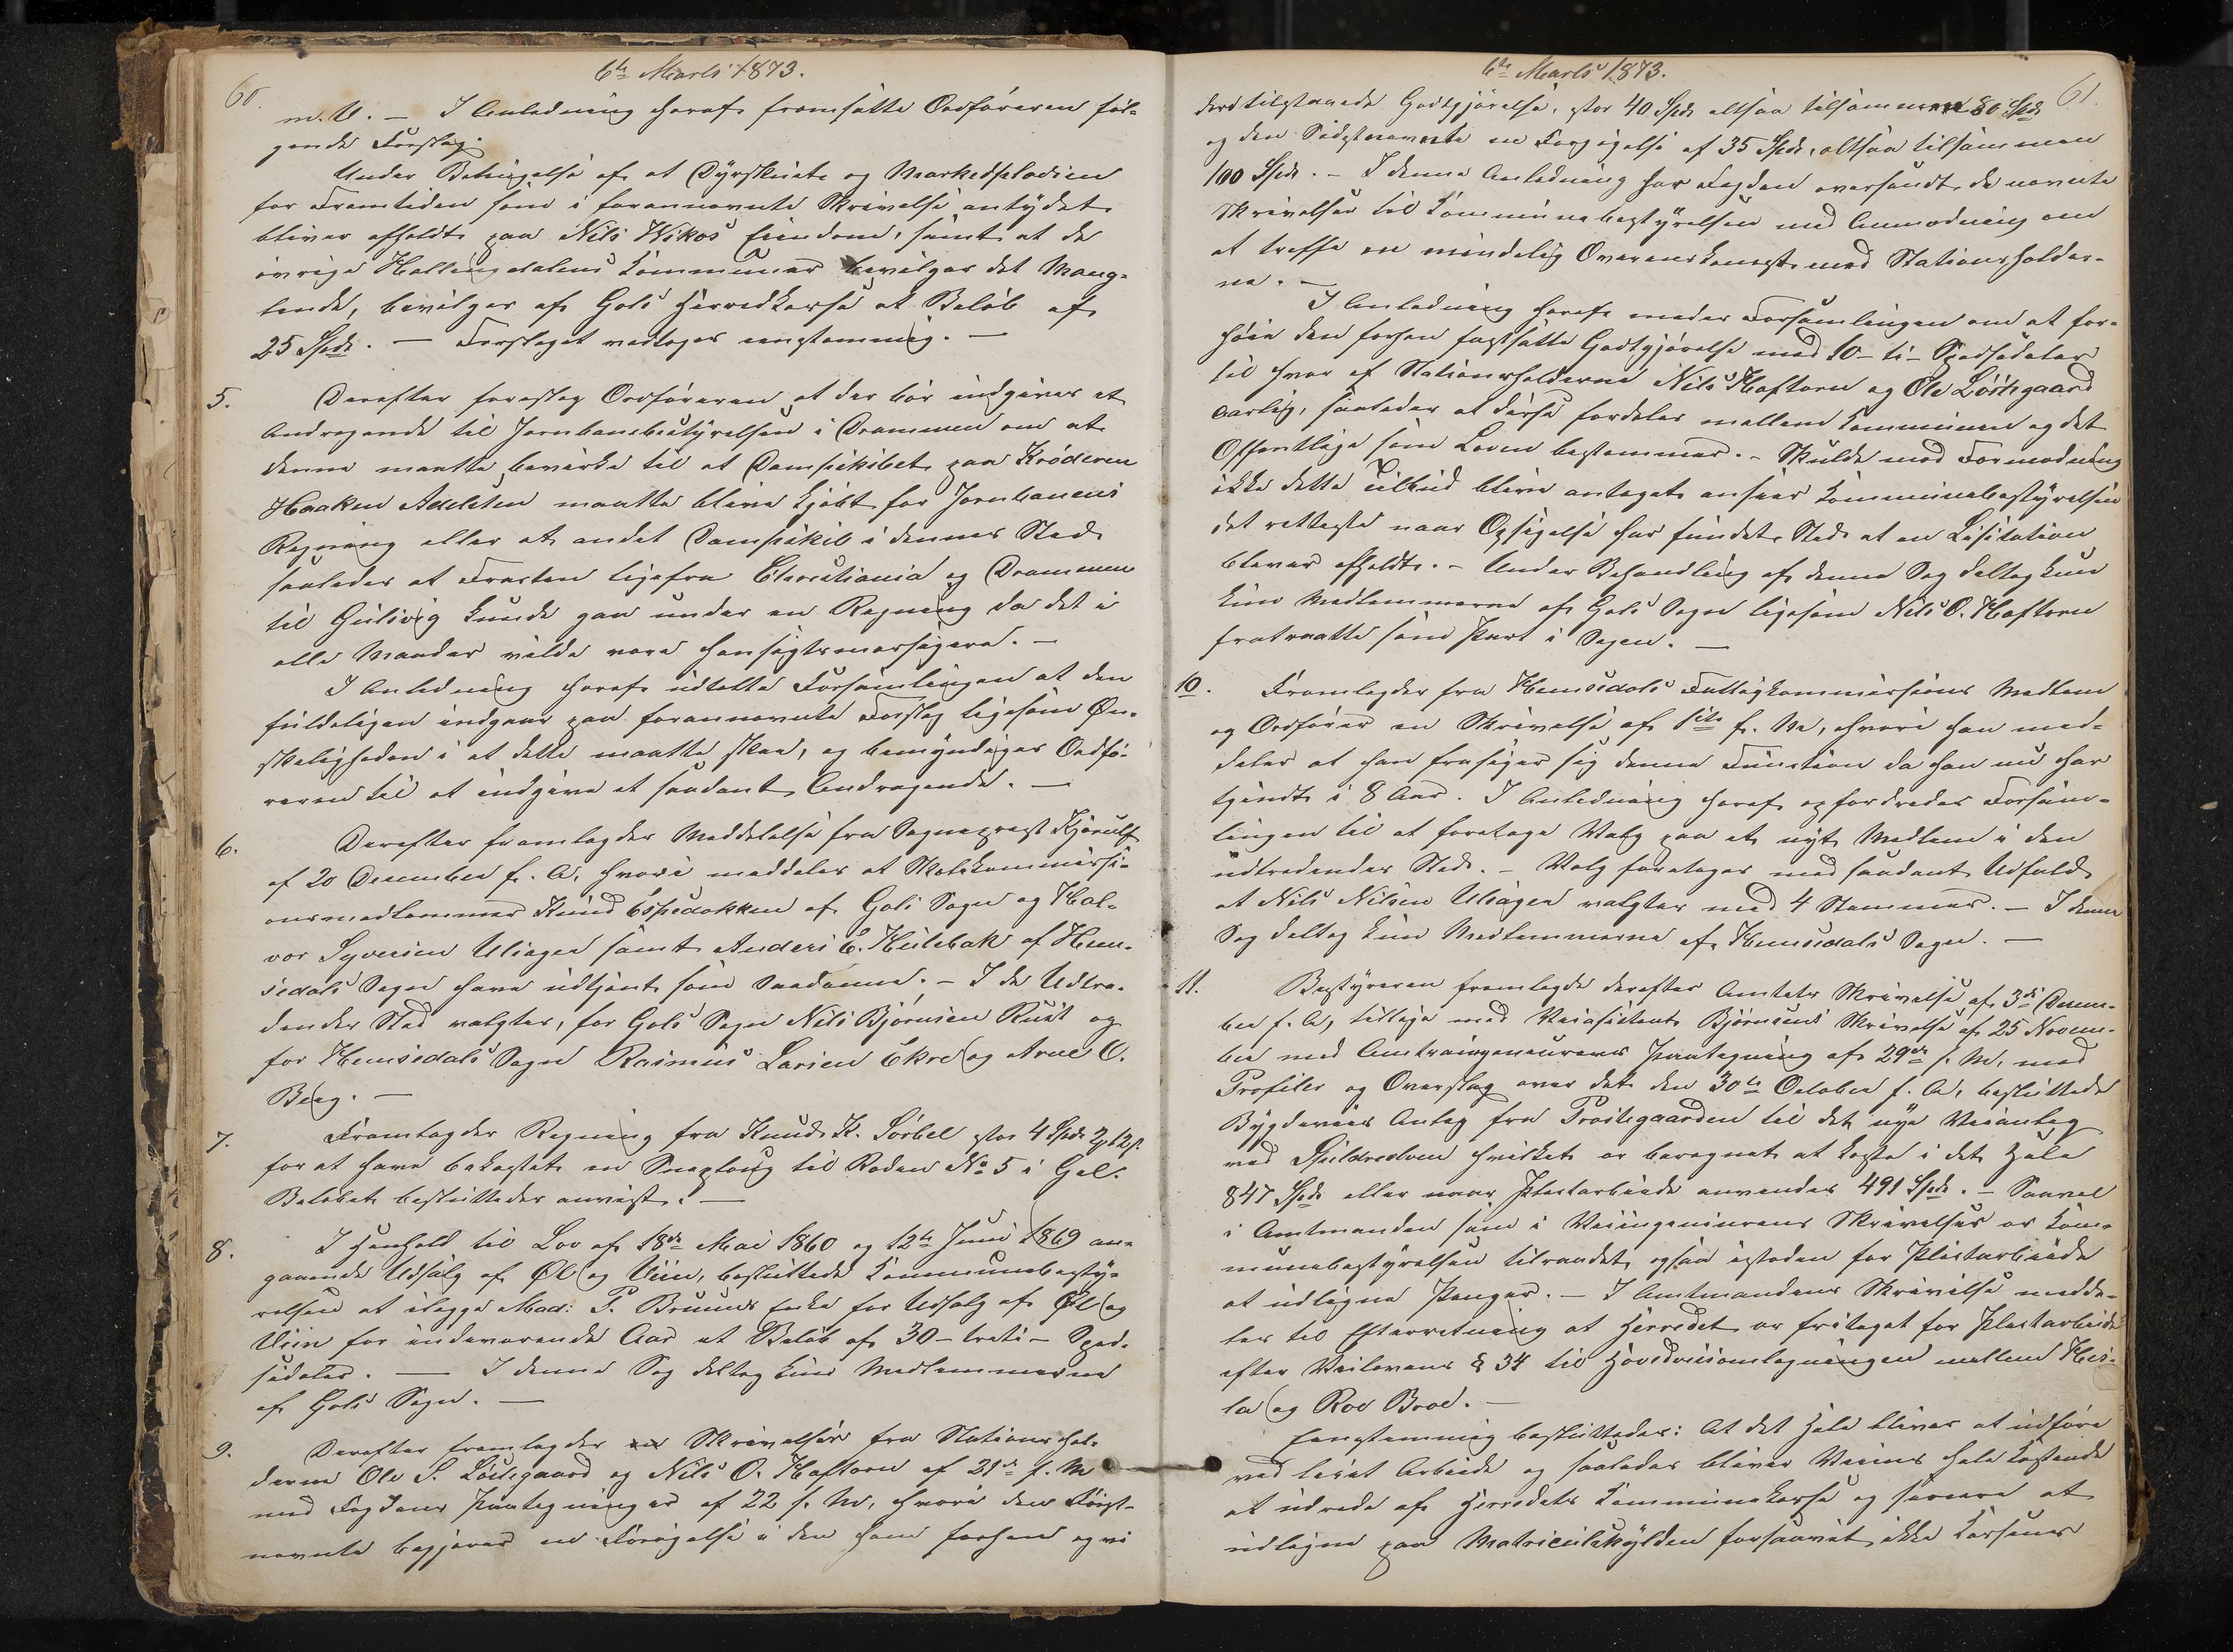 60.
6te Marts 1873.
m. V. — I Anledning heraf fremsatte Ordføreren føl-
gende Forslag:
Under Betingelse af at Dyrskuets og Markedspladsen
for Fremtiden som i forannævnte Skrivelse antydet
bliver afholdt paa Nils Wikos Eiendom, samt at de
øvrige Hallingdalens Kommuner bevilger det Mang-
lende, bevilges af Gols Herredkasse et Beløb af
25 Spd. — Forslaget vedtoges enstemmig. —
5. Derefter foreslog Ordføreren at der bør indgives et
Andragende til Jernbanebestyrelsen i Drammen om at
denne maatte bevirke til at Dampskibet paa Krøderen
Haakon Adelsten maatte blive kjøbt for Jernbanens
Regning eller et andet Dampskib i dennes Sted
saaledes at Fragten ligefra Christiania og Drammen
til Gulsvig kunde gaa under en Regning da det i
alle Maader vilde være hensigtsmæssigere. —
I Anledning heraf udtalte Forsamlingen at den
fuldeligen indgaar paa forannævnte Forslag ligesom Øn-
skeligheden i at dette maatte skee, og bemyndiges Ordfø-
reren til at indgive et saadant Andragende. —
6. Derefter fremlagdes Meddelelse fra Sogneprest Kjerulf
af 20 December f. A. hvori meddeles at Skolekommissi-
onsmedlemmer Knud Espedokken af Gols Sogn og Hal-
vor Syversen Ulsager samt Anders E. Hulebak af Hem-
sedals Sogn have udtjent som Saadanne. — I de Udtræ-
dendes Sted valgtes, for Gols Sogn Nils Bjørnsen Rust og
for Hemsedals Sogn Rasmus Larsen Ekre og Arne O.
Berg. —
7. Fremlagdes Regning fra Knud K. Sørbel stor 4 Spd. 2 ₰ 12 s.
for at have bekostet en Sneploug til Roden No 5 i Gol.
Beløbet besluttedes anvist. —
8. I Henhold til Lov af 18de Mai 1860 og 12te Juni 1869 an-
gaaende Udsalg af Øl og Viin, besluttede Kommunebesty-
relsen at ilægge Mad: P. Bruuns Enke for Udsalg af Øl og
Viin for indeværende Aar et Beløb af 30 - treti - Spe-
sidaler. — I denne Sag deltog kun Medlemmerne
af Gols Sogn. —
9. Derefter fremlagdes Skrivelser fra Stationshol-
derne Ole S. Løstegaard og Nils O. Haftorn af 21de f. M
med Fogdens Paategninger af 22 s. M, hvori den Først-
nævnte begjærer en Forøgelse i den ham forhen og vi
6te Marts 1873.
61.
dere tilstaaede Godtgjørelse, stor 40 Spd. altsaa tilsammen 80 Spd.
og den Sidstnævnte en Forøgelse af 35 Spd. altsaa tilsammen
100 Spd. — I denne Anledning har Fogden oversendt de nævnte
Skrivelser til Kommunebestyrelsen med Anmodning om
at træffe en mindelig Overenskomst med Stationsholder-
ne. —
I Anledning heraf enedes Forsamlingen om at for-
høie den forhen fastsatte Godtgjørelse med 10 - ti - Speciedaler
til hver af Stationsholderne Nils Haftorn og Ole Løstegaard
aarlig, saaledes at disse fordeles mellem Kommunen og det
Offentlige som Loven bestemmer. — Skulde mod Formodning
ikke dette Tilbud blive antaget anseer Kommunebestyrelsen
det retteste naar Opsigelse har fundet Sted at en Lisitation
bliver afholdt. — Under Behandling af denne Sag deltog kun
kun Medlemmerne af Gols Sogn ligesom Nils O. Haftorn
fratraatte som Part i Sagen. —
10. Fremlagdes fra Hemsedals Fattigkommissions Medlem
og Ordfører en Skrivelse af 1ste f. M, hvori han med-
deler at han frasiger sig denne Function da han nu har
tjendt i 8 Aar. I Anledning heraf opfordredes Forsam-
lingen til at foretage Valg paa et nyt Medlem i den
udtrædendes Sted. — Valg foretoges med saadant Udfald
at Nils Nilsen Ulsager valgtes med 4 Stemmer. — I denne
Sag deltog kun Medlemmerne af Hemsedals Sogn. —
11. Bestyreren fremlagde derefter Amtets Skrivelse af 3de Decem-
ber f. A, tillige med Veiassistent Bjørnsens Skrivelse af 25 Novem-
ber med Amtsingeneurens Paategning af 29de s. M, med
Profiler og Overslag over det den 30te October f. A, besluttede
Bygdeveis Anlæg fra Prestegaarden til det nye Veianlæg
ved hvilket er beregnet at koste i det Hele
847 Spd. eller naar Pligtarbeide anvendes 491 Spd. — Saavel
i Amtmanden som i Veiingeniurens Skrivelser er Kom-
munebestyrelsen tilraadet ogsaa istedenfor Pligtarbeide
at udligne Penger. — I Amtmandens Skrivelse medde-
les til Efterretning at Herredet er fritaget for Pligtarbeide
efter Veilovens § 34 til Hovedveiomlægningen mellem Hei-
la og Roe Broe. —
Eenstemmig besluttedes: At det Hele bliver at udføre
ved leiet Arbeide og saaledes bliver Veiens hele Kostende
at udrede af Herredets Kommunekasse og senere at
udligne paa Matriculskylden forsaavidt ikke Kassens